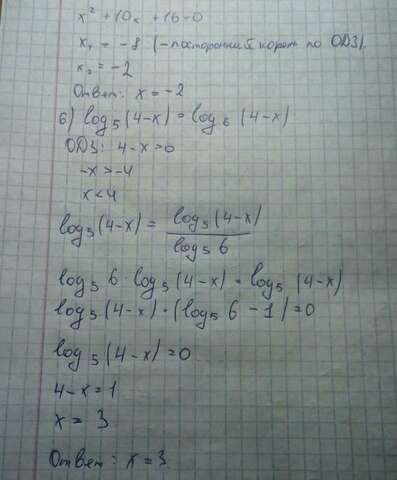 x² + 10x + 16 = 0
x₁ = -8 (- посторонний корень по ОДЗ).
x₂ = -2
Ответ: x = -2
6) log₅ (4-x) = log₆ (4-x)
ОДЗ: 4-x>0
-x>-4
x<4
log₅(4-x) = log₅(4-x) / log₅ 6
log₅ 6 · log₅(4-x) = log₅ (4-x)
log₅(4-x) · (log₅ 6 - 1) = 0
log₅ (4-x) = 0
4-x=1
x = 3
Ответ: x = 3